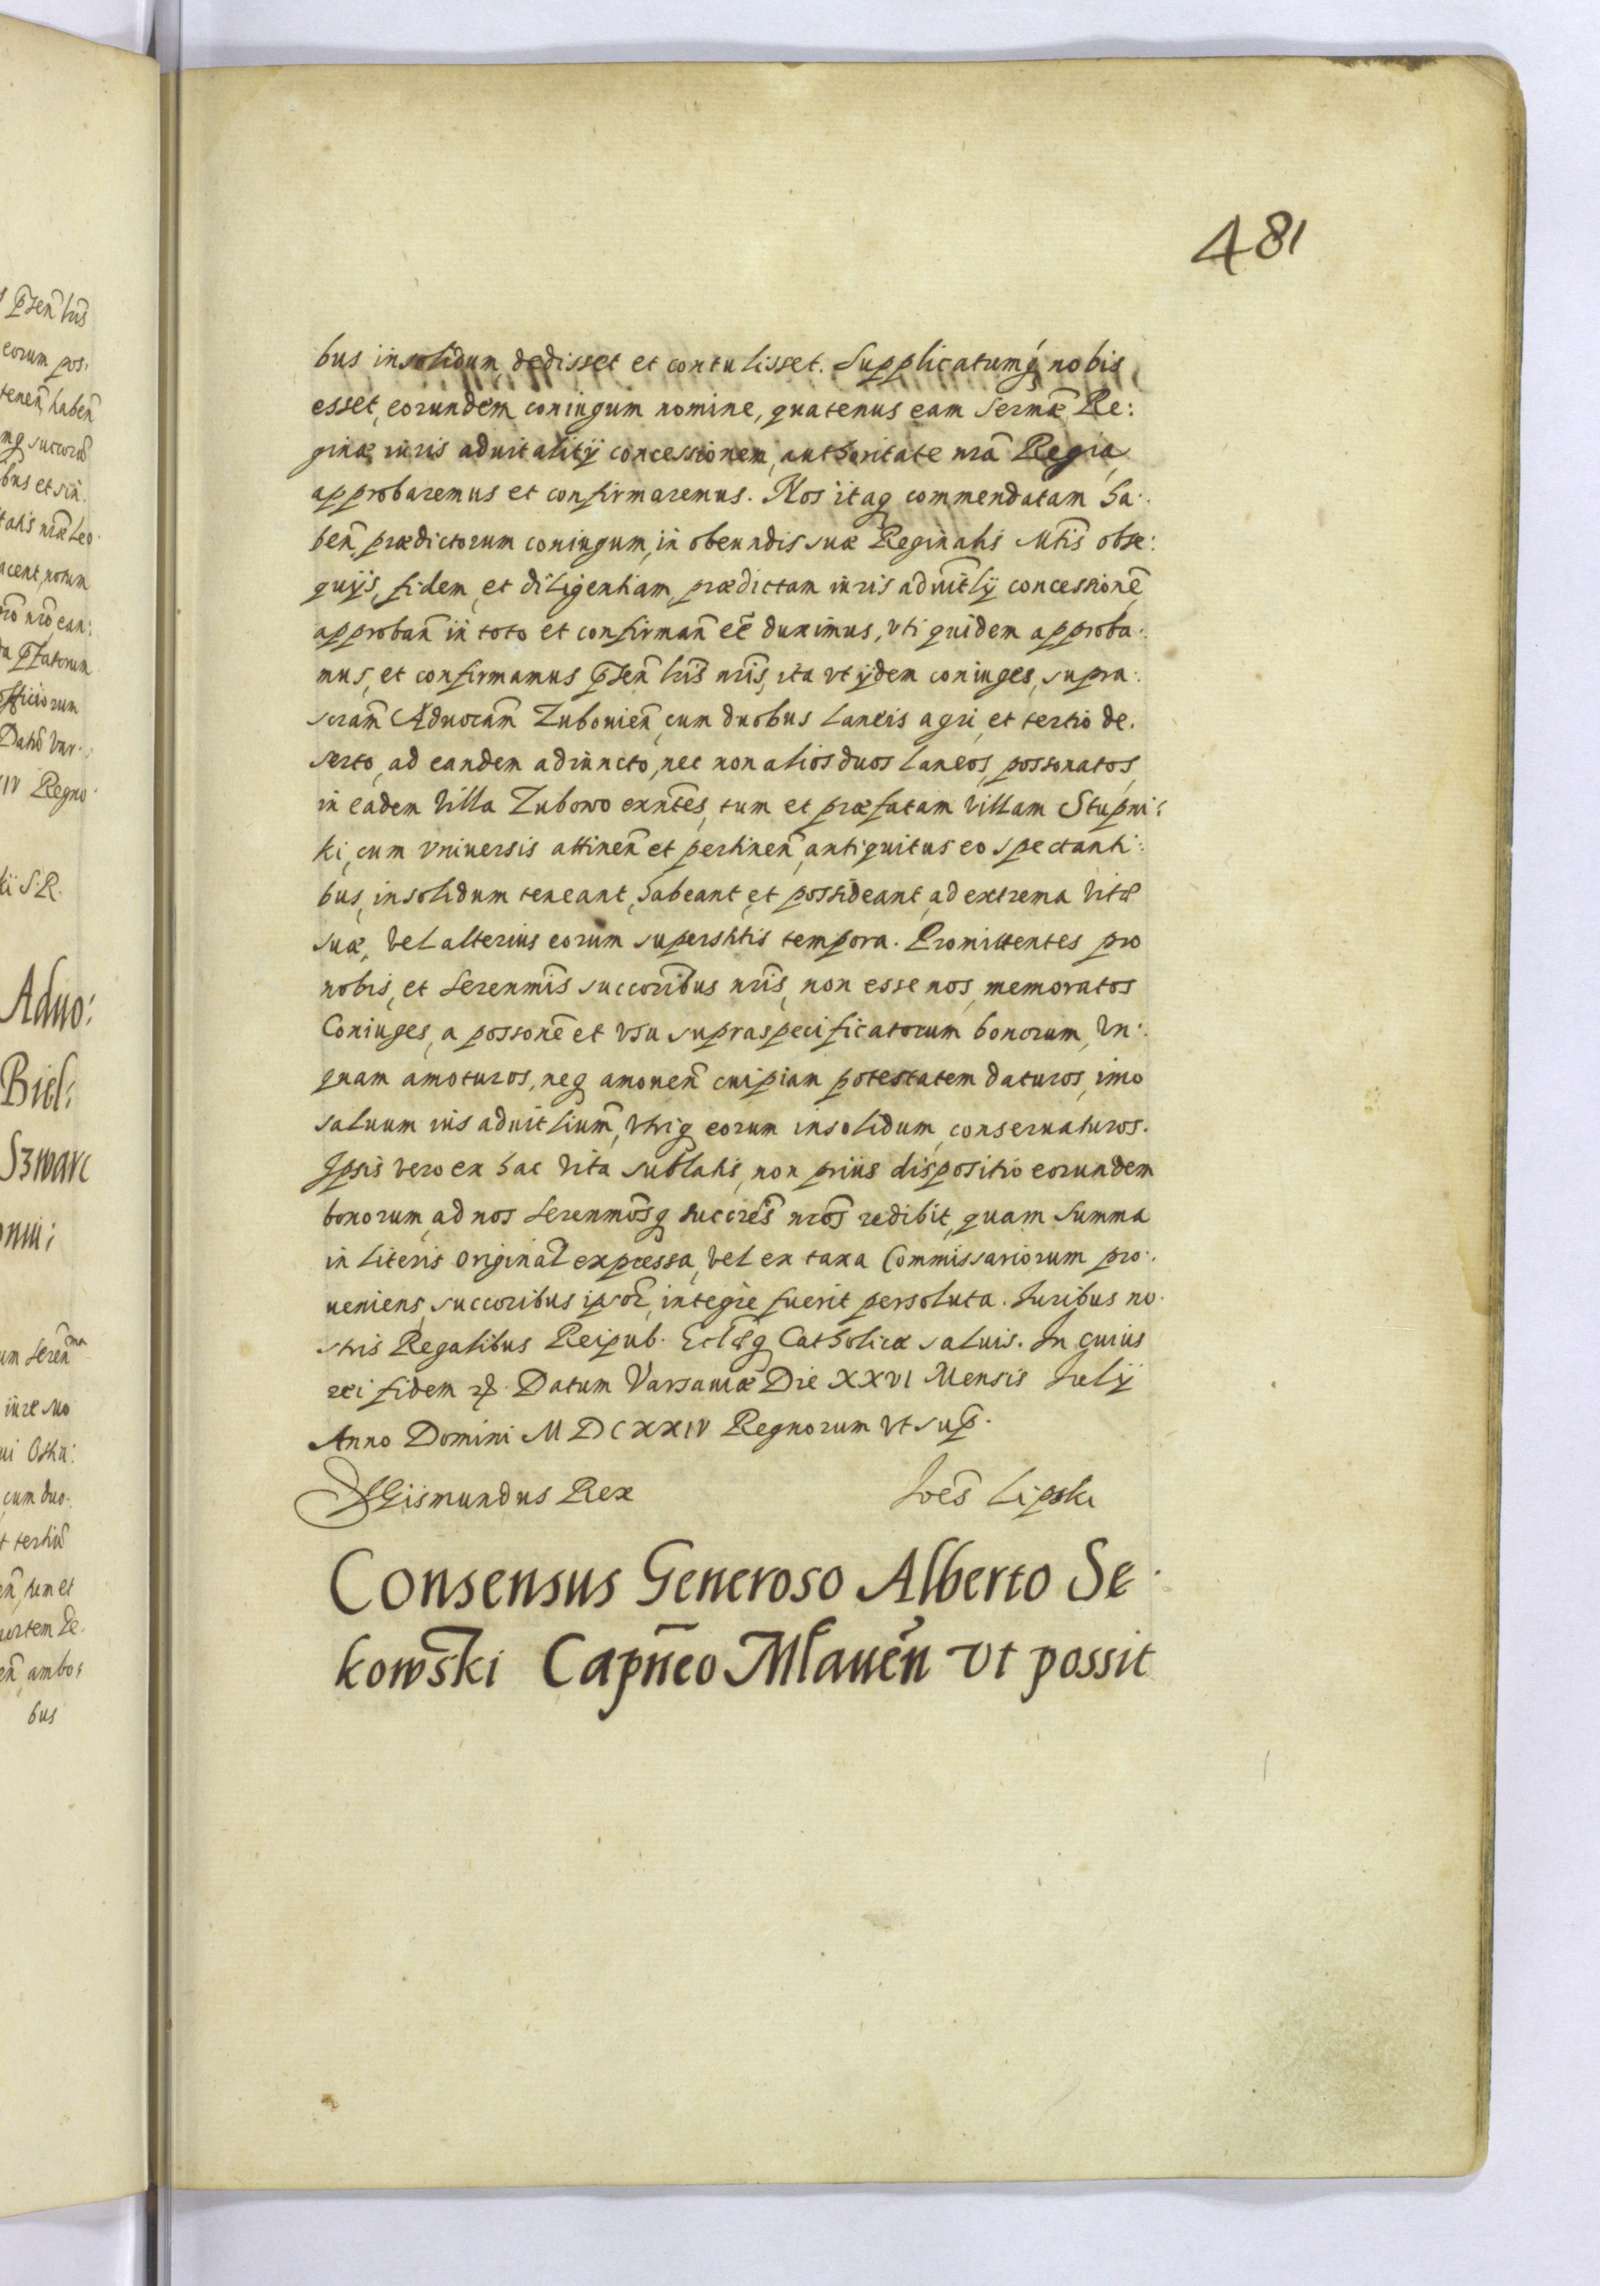 481
bus insolidum, dedisset et contulisset. Supplicatumq nobis
esset, eorundem coniugum nomine, quatenus eam Sermæ Re:
ginæ iuris aduitalitÿ concessionem, authoritate nrã Regia
approbaremus et confirmaremus. Nos itaq commendatam ha:
beñ, prædictorum coniugum, in obeundis suæ Reginalis Mtis obse:
quÿs, fidem, et diligentiam, prædictam iuris aduitlÿ concessionẽ
approbañ in toto et confirmañ eẽ duximus, vti quidem approba:
mus, et confirmamus p̃señ lris nris, ita vt ÿdem coniuges, supra:
scram̃ Aduocam̃ Zubouień, cum duobus laneis agri, et tertio de:
serto, ad eandem adiuncto, nec non alios duos laneos, possonatos,
in eadem villa Zubowo exñtes, tum et præfatam villam Stupni:
ki, cum vniuersis attineñ et pertineñ antiquitus eo spectanti:
bus, insolidum teneant, habeant et possideant, ad extrema vitæ
suæ, vel alterius eorum superstitis tempora. Promittentes pro
nobis, et Serenmis succoribus nris, non esse nos, memoratos
Coniuges, a possonẽ et vsu supraspecificatorum bonorum, vn:
quam amoturos, neq amoueñ cuipiam potestatem daturos, imo
saluum ius aduitlium, vtriq eorum insolidum, conseruaturos.
Ipsis vero ex hac vita sublatis, non prius dispositio eorundem
bonorum, ad nos Serenmosq succres nros redibit, quam summa
in literis original expressa, vel ex taxa Commissariorum pro:
ueniens, succoribus ipsor, integre fuerit persoluta. Iuribus no:
stris Regalibus Reipub. Ecclæq Catholicæ saluis. In cuius
rei fidem etc. Datum Varsauiæ Die XXVI Mensis Iulÿ
Anno Domini MDCXXIV Regnorum vt sup.
Sigismundus Rex Ioẽs Lipski
Consensus Generoso Alberto Se:
kowski Capñeo Mlaueñ vt possit